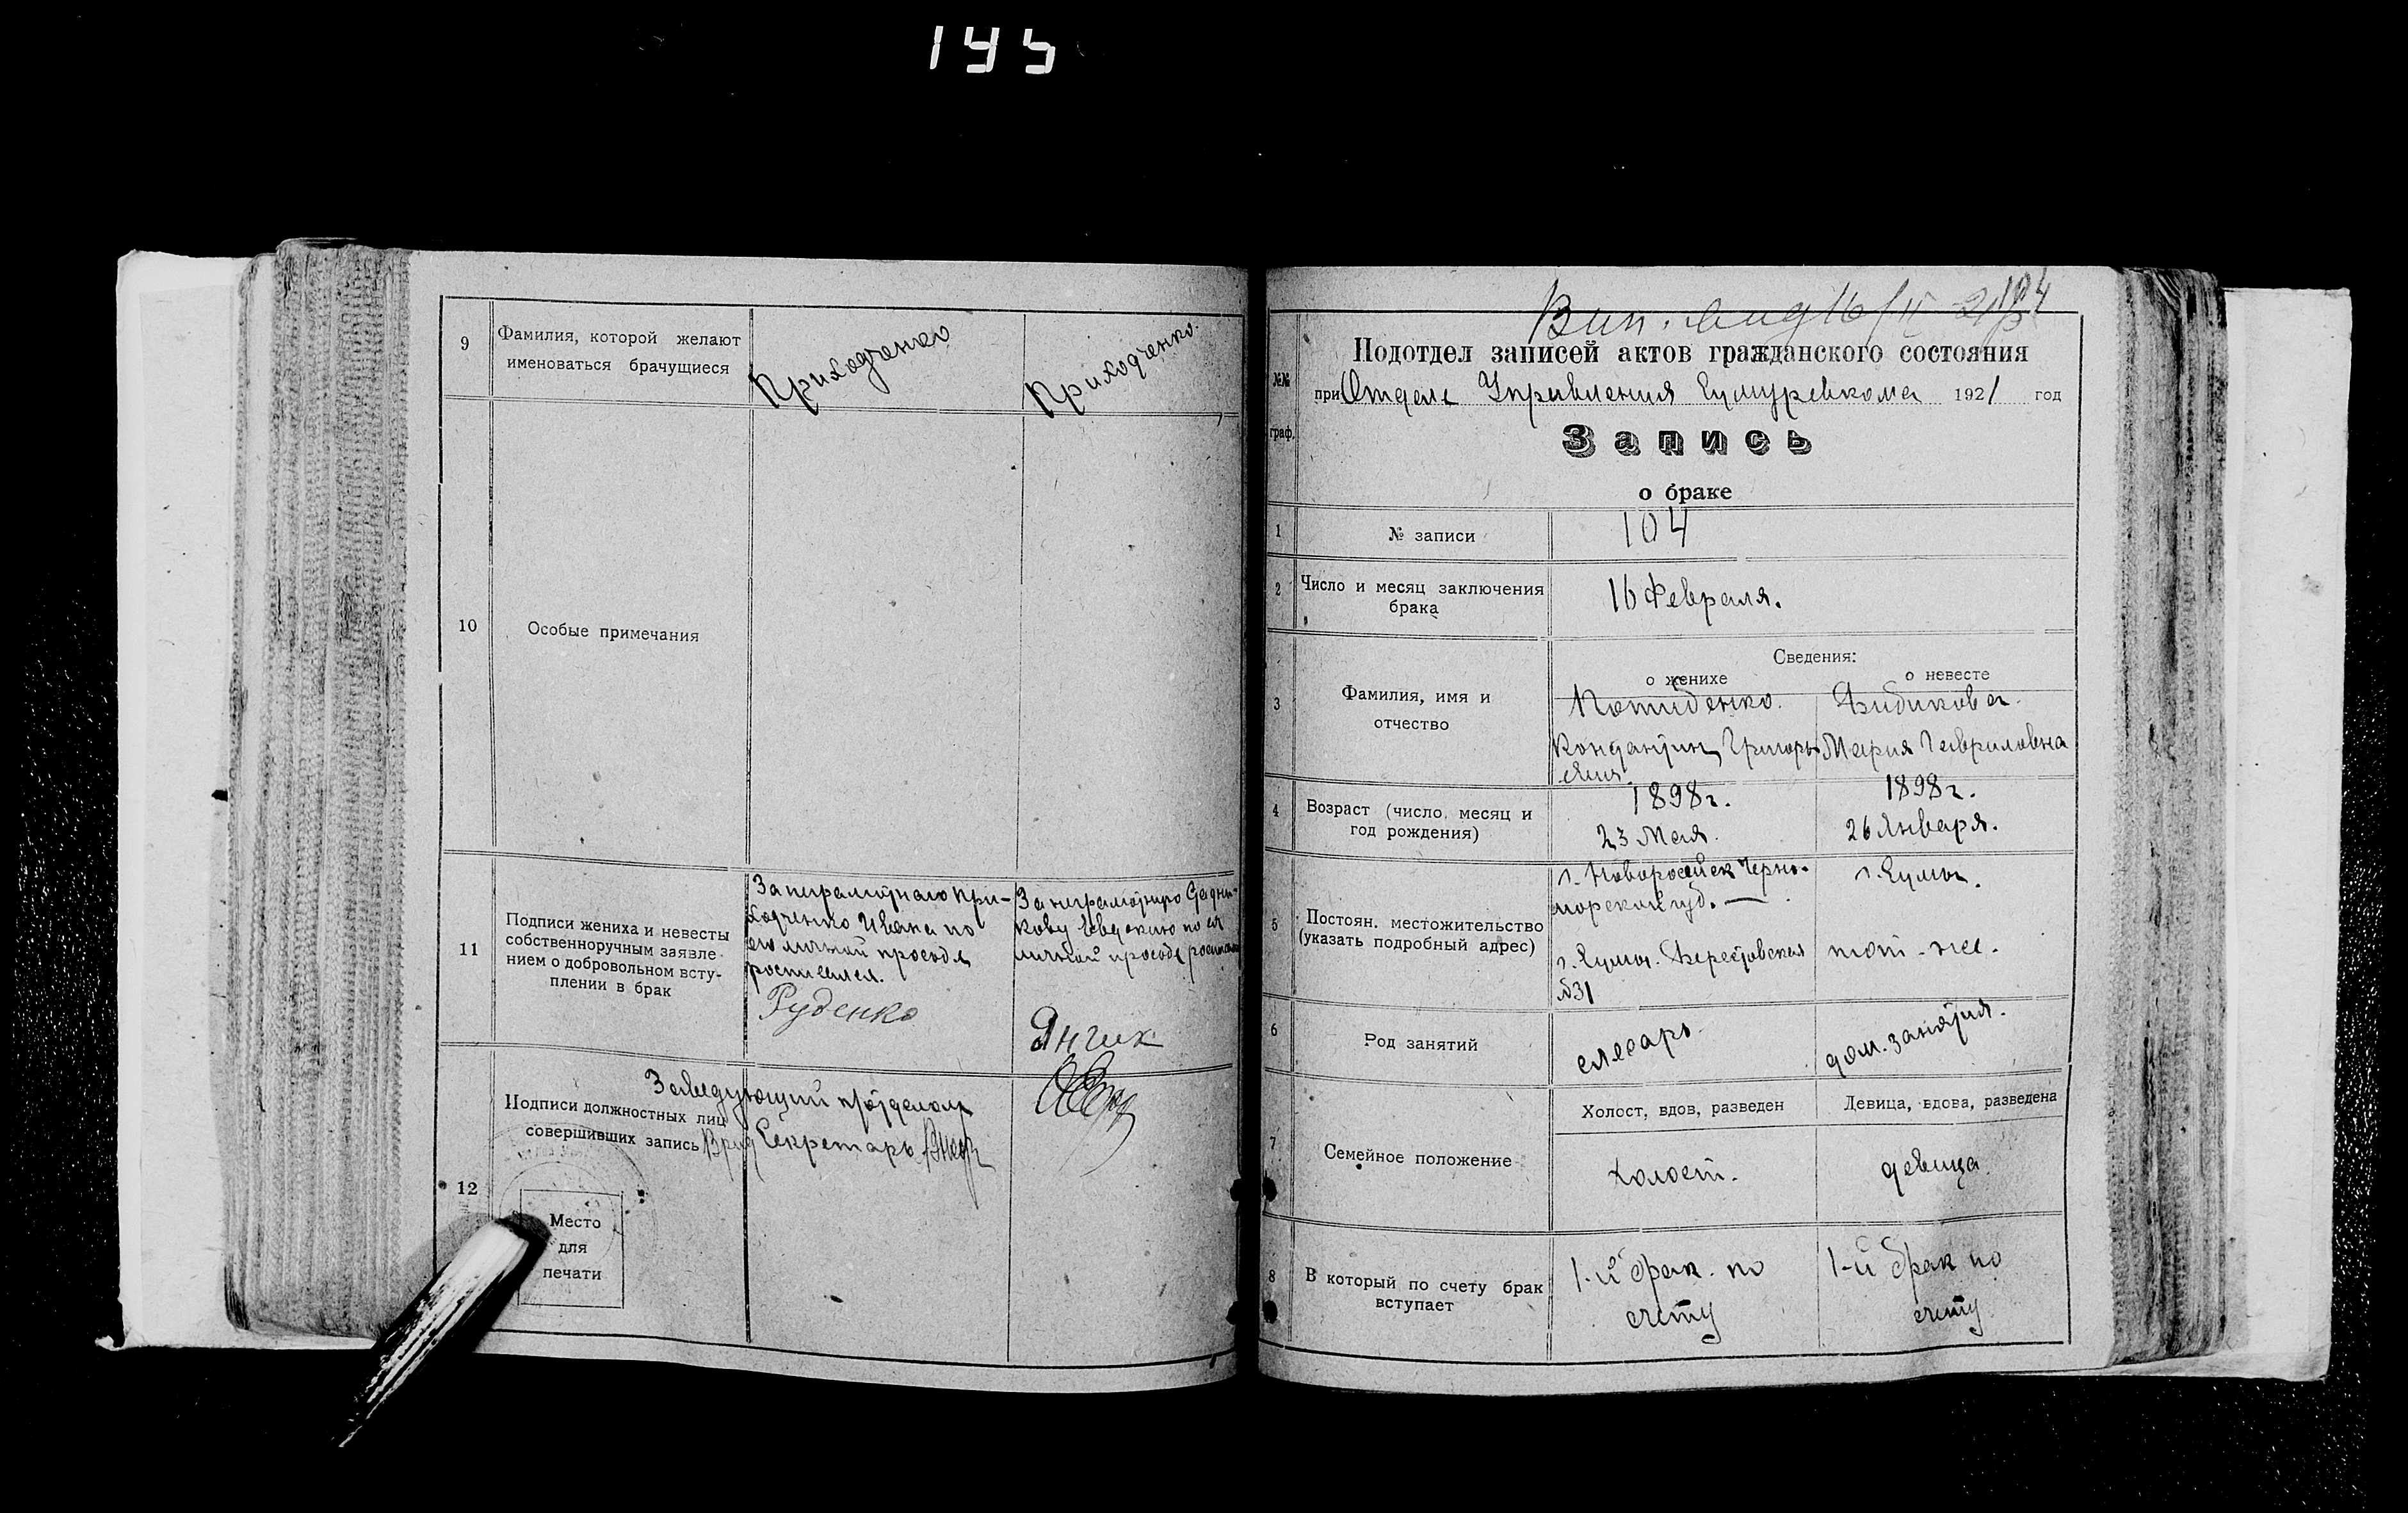 145
9
Фамилия, которой желают
именоваться брачущиеся
Приходченко
Приходченко.
10
Особые примечания
11
Подписи жениха и невесты
собственноручным заявле-
нием о добровольном всту-
плении в брак
За неграмотного При-
ходченко Ивана по
его личной просьбе
росписался.
Руденко
За неграмотную Садни-
кову Евдокию по ея
личной просьбе
Янчик
12
Заведующий п/отделом
Подписи должностных лиц
совершивших запись
Врид Секретарь
Место
для
печати
104
Подотдел записей актов гражданского состояния
№№
граф.
при Отделе Управления Сумуревкома 1921 год
Запись
о браке
1
№ записи
104
2
Число и месяц заключения
брака
16 Февраля.
3
Фамилия, имя и
отчество
Сведения:
о женихе
о невесте
Григорь
Мария Гавриловна
4
Возраст (число, месяц и
год рождения)
1898г.
23 Мая.
1898г.
26 Января.
5
Постоян. местожительство
(указать подробный адрес)
г. Новороссийск Черно-
морской губ. —
г. Сумы. Берестовская
№31
г. Сумы.
тот-же.
6
Род занятий
слесарь
дом. занятия.
7
Семейное положение
Холост, вдов, разведен
Девица, вдова, разведена
холост.
девица.
8
В который по счету брак
вступает
1-й брак по
счету
1-й брак по
счету